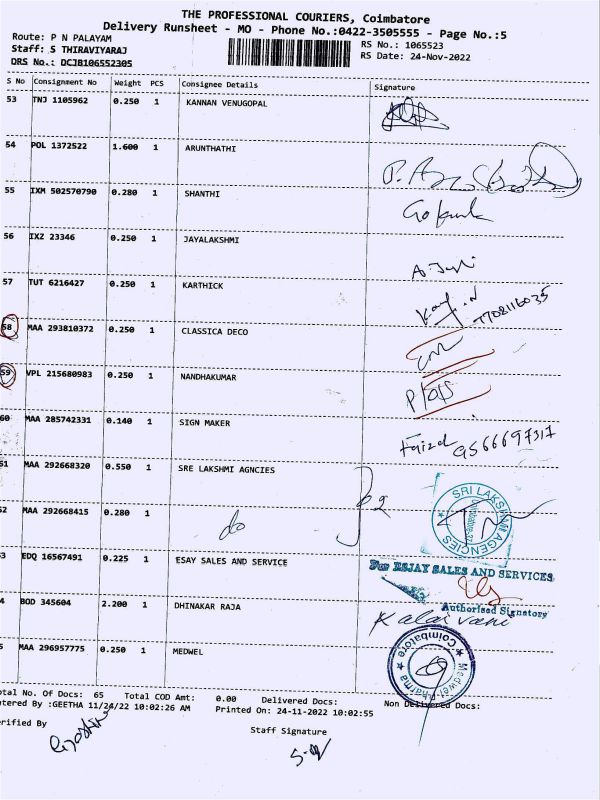 THE PROFESSIONAL COURIERS, Coimbatore
Delivery Runsheet - MO - Phone No.:0422-3505555 - Page No.:5
Route: P N PALAYAM
Staff: S THIRAVIYARAJ
DRS No.: DCJB106552305
RS No.: 1065523
RS Date: 24-Nov-2022
S No Consignment No Weight PCS Consignee Details Signature
53 TNJ 1105962 0.250 1 KANNAN VENUGOPAL
54 POL 1372522 1.600 1 ARUNTHATHI
55 IXM 502570790 0.280 1 SHANTHI
56 IXZ 23346 0.250 1 JAYALAKSHMI
57 TUT 6216427 0.250 1 KARTHICK 7708116035
58 MAA 293810372 0.250 1 CLASSICA DECO
59 VPL 215680983 0.250 1 NANDHAKUMAR
60 MAA 285742331 0.140 1 SIGN MAKER Faizal 9566697317
61 MAA 292668320 0.550 1 SRE LAKSHMI AGNCIES
SRI LAKSHMI AGENCIES
62 MAA 292668415 0.280 1 do
63 EDQ 16567491 0.225 1 ESAY SALES AND SERVICE
For ESJAY SALES AND SERVICES
Authorised Signatory
64 BOD 345604 2.200 1 DHINAKAR RAJA Kalaivani
65 MAA 296957775 0.250 1 MEDWEL
Medwel Pharma Coimbatore
otal No. Of Docs: 65 Total COD Amt: 0.00 Delivered Docs: Non Delivered Docs:
ntered By :GEETHA 11/24/22 10:02:26 AM Printed On: 24-11-2022 10:02:55
erified By
Staff Signature